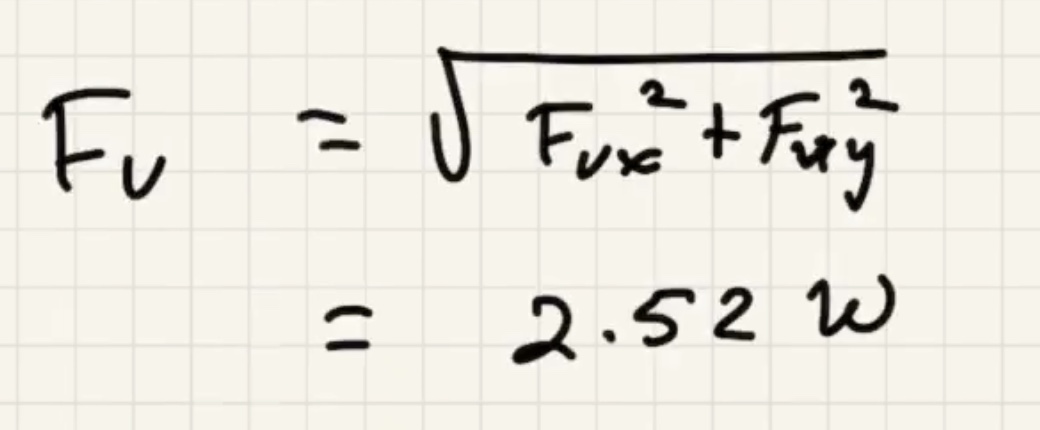 Fᵥ = √(Fᵥₓ² + Fᵥy²)
= 2.52 W